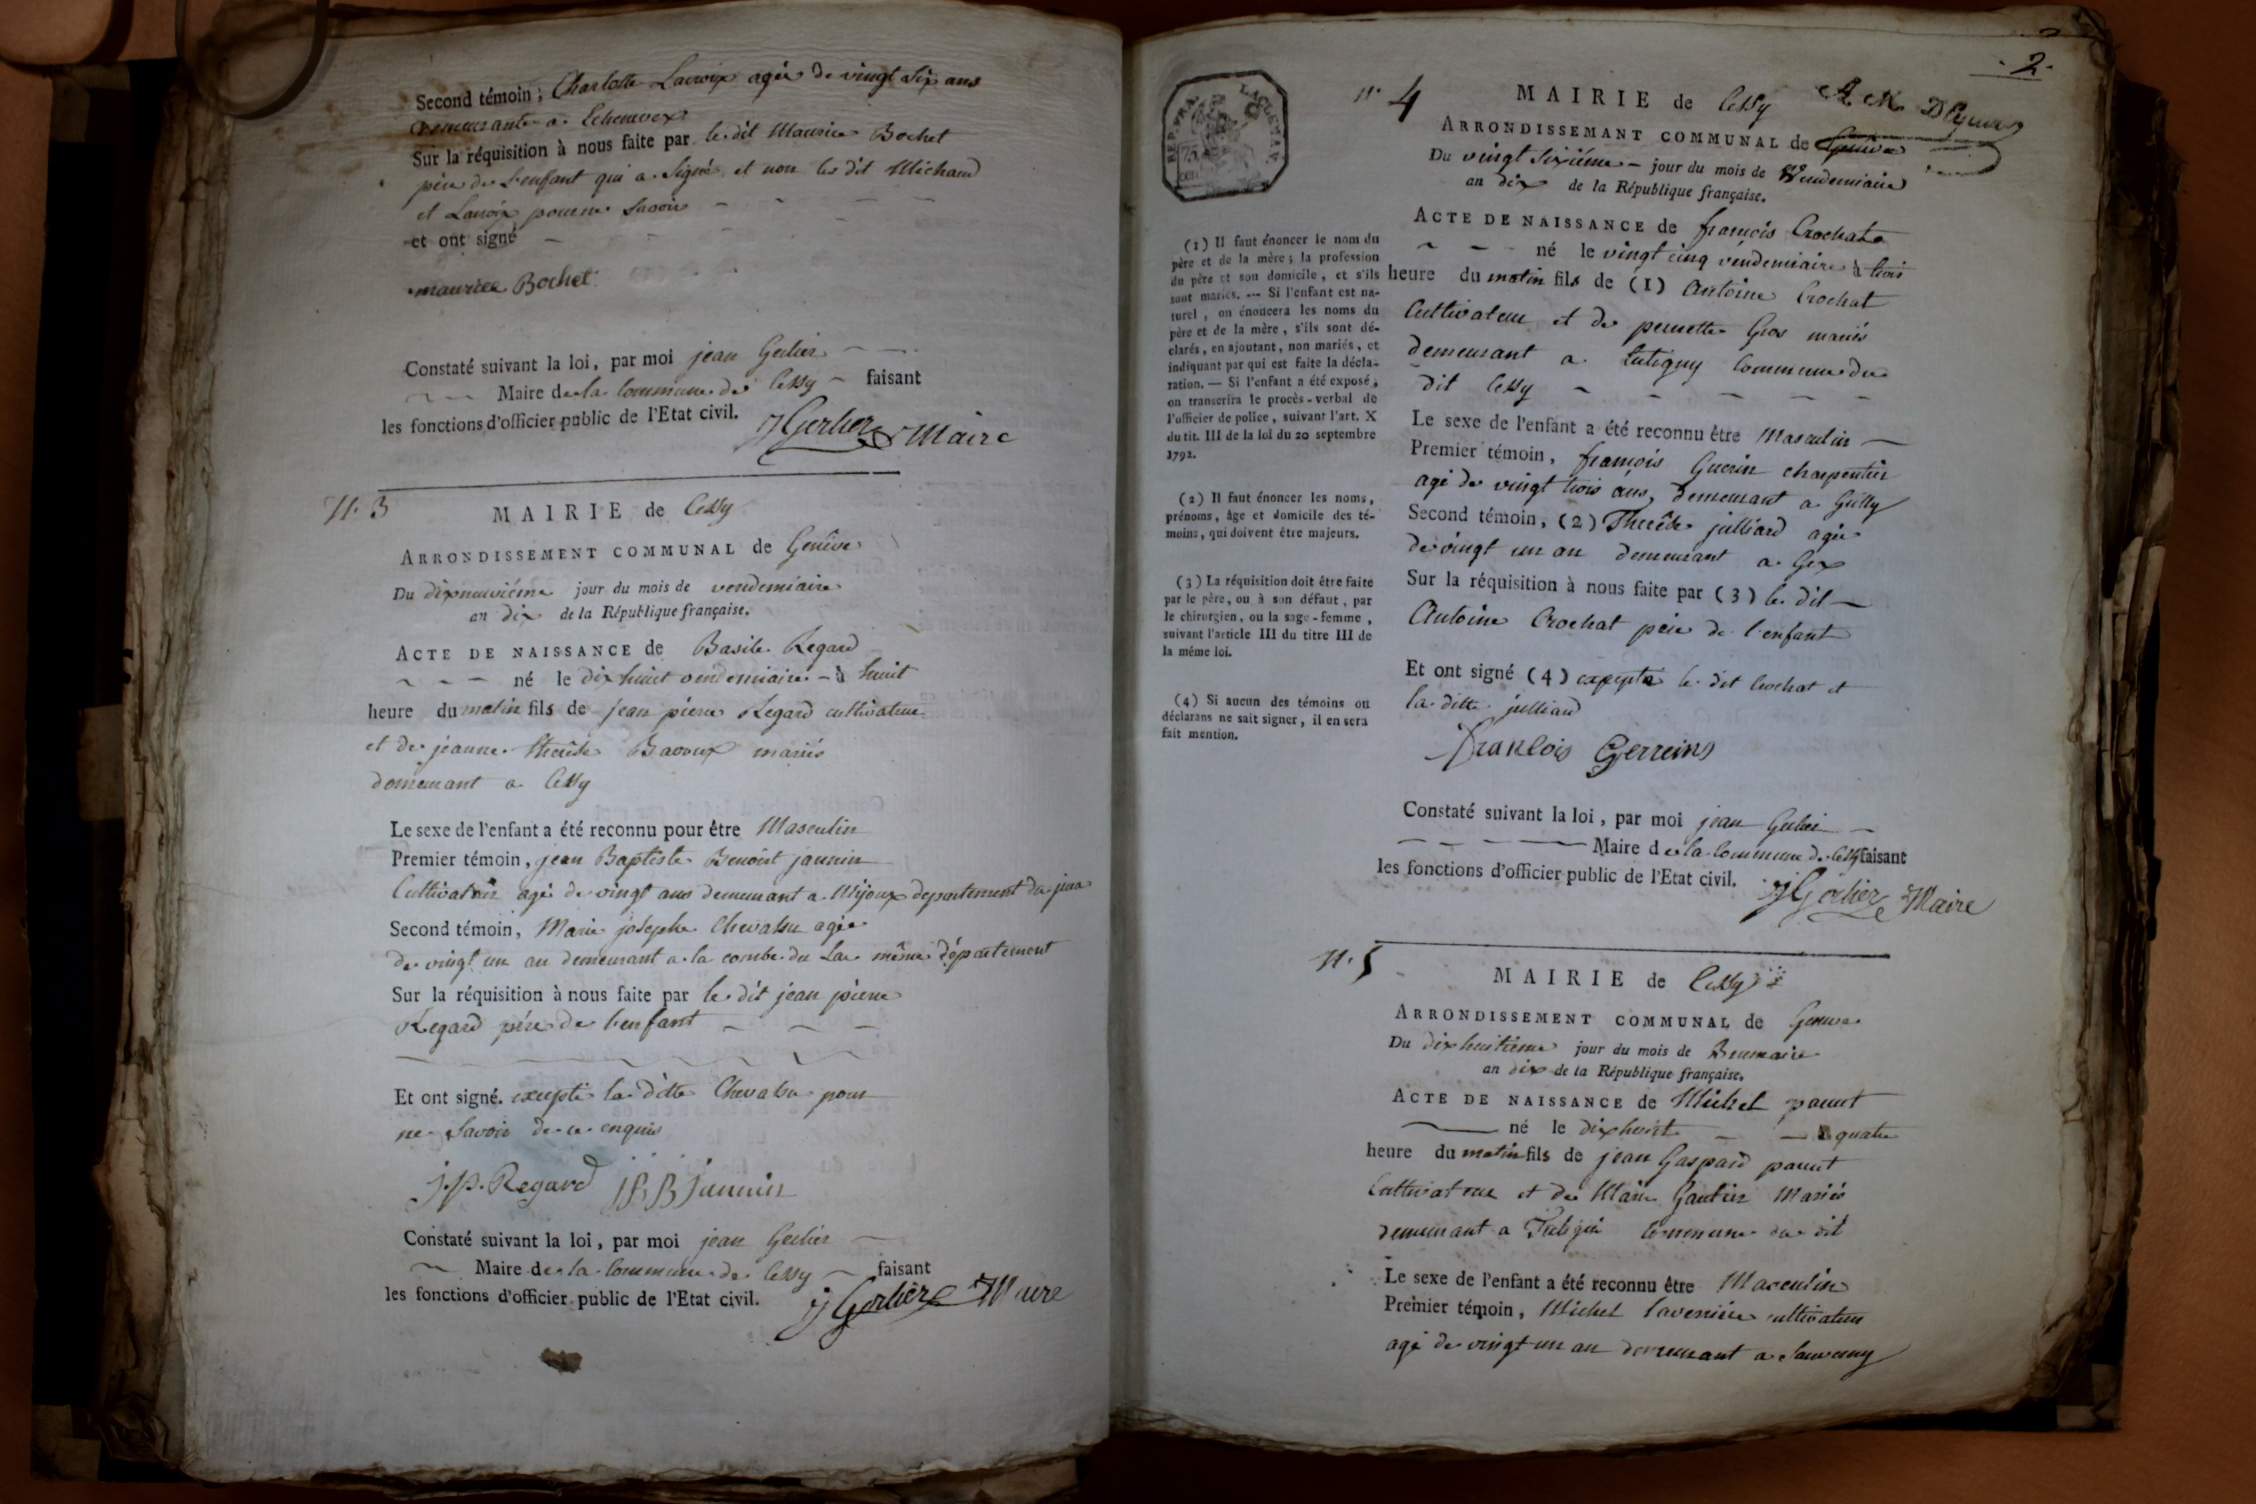 Second témoin ; Charlotte Lacroix agée de vingt six ans
demeurante a Echenevex
Sur la réquisition à nous faite par le dit Maurice Bochet
père de l'enfant qui a signé et non les dit Michaud
et Lacroix pour ne savoir
et ont signé
maurice Bochet
Constaté suivant la loi, par moi jean Gerlier
Maire de la Commune de Cessy faisant
les fonctions d'officier public de l'Etat civil.
J Gerlier Maire
N. 3
MAIRIE de Cessy
ARRONDISSEMENT COMMUNAL de Genève
Du dixneuvième jour du mois de vendemiaire
an dix de la République française.
ACTE DE NAISSANCE de Basile Regard
né le dix huit vendemiaire à huit
heure du matin fils de jean pierre Regard cultivateur
et de jeanne Therèse Bavoux mariés
demeurant a Cessy
Le sexe de l'enfant a été reconnu pour être Masculin
Premier témoin, jean Baptiste Benoist jannin
Cultivateur agé de vingt ans demeurant a Mijoux departement du jura
Second témoin, Marie josephe Chevassu agée
de vingt un an demeurant a la combe du Lac même département
Sur la réquisition à nous faite par le dit jean pierre
Regard père de l'enfant
Et ont signé. excepté la ditte Chevassu pour
ne savoir de ce enquis
j.p. Regard JBB Jannin
Constaté suivant la loi, par moi jean Gerlier
Maire de la Commune de Cessy faisant
les fonctions d'officier public de l'Etat civil.
j Gerlier Maire
2
N. 4
REP. FRA.
75
cen
MAIRIE de Cessy
ARRONDISSEMANT COMMUNAL de Genève
Du vingt sixième jour du mois de Vendemiaire
an dix de la République française.
ACTE DE NAISSANCE de françois Crochat
né le vingt cinq véndemiaire à trois
heure du matin fils de (1) Antoine Crochat
Cultivateur et de pernette Gros mariés
demeurant a Commune du
dit Cessy
Le sexe de l'enfant a été reconnu être Masculin
Premier témoin, françois Guerin charpentier
agé de vingt trois ans, demeurant a Gilly
Second témoin, (2) Therèse julliard agée
de vingt un an demeurant a Gex
Sur la réquisition à nous faite par (3) le dit
Antoine Crochat père de l'enfant
Et ont signé (4) excepté le dit Crochat et
la ditte julliard
francois Gerreins
Constaté suivant la loi, par moi jean Gerlier
Maire de la Commune de Cessy faisant
les fonctions d'officier public de l'Etat civil.
j Gerlier Maire
(1) Il faut énoncer le nom du
père et de la mère ; la profession
du père et son domicile, et s'ils
sont mariés. — Si l'enfant est na-
turel, on énoncera les noms du
père et de la mère, s'ils sont dé-
clarés, en ajoutant, non mariés, et
indiquant par qui est faite la décla-
ration. — Si l'enfant a été exposé,
on transcrira le procès-verbal de
l'officier de police, suivant l'art. X
du tit. III de la loi du 20 septembre
1792.
(2) Il faut énoncer les noms,
prénoms, âge et domicile des té-
moins, qui doivent être majeurs.
(3) La réquisition doit être faite
par le père, ou à son défaut, par
le chirurgien, ou la sage-femme,
suivant l'article III du titre III de
la même loi.
(4) Si aucun des témoins ou
déclarans ne sait signer, il en sera
fait mention.
N. 5
MAIRIE de Cessy
ARRONDISSEMENT COMMUNAL de Geneve
Du dixhuitième jour du mois de Brumaire
an dix de la République française.
ACTE DE NAISSANCE de Michel panut
né le dixhuit à quatre
heure du matin fils de jean Gaspard panut
Cultivateur et de Marie Gautier Mariés
demeurant a commune du dit
Le sexe de l'enfant a été reconnu être Masculin
Premier témoin, Michel cultivateur
agé de vingt un an demeurant a Sauverny